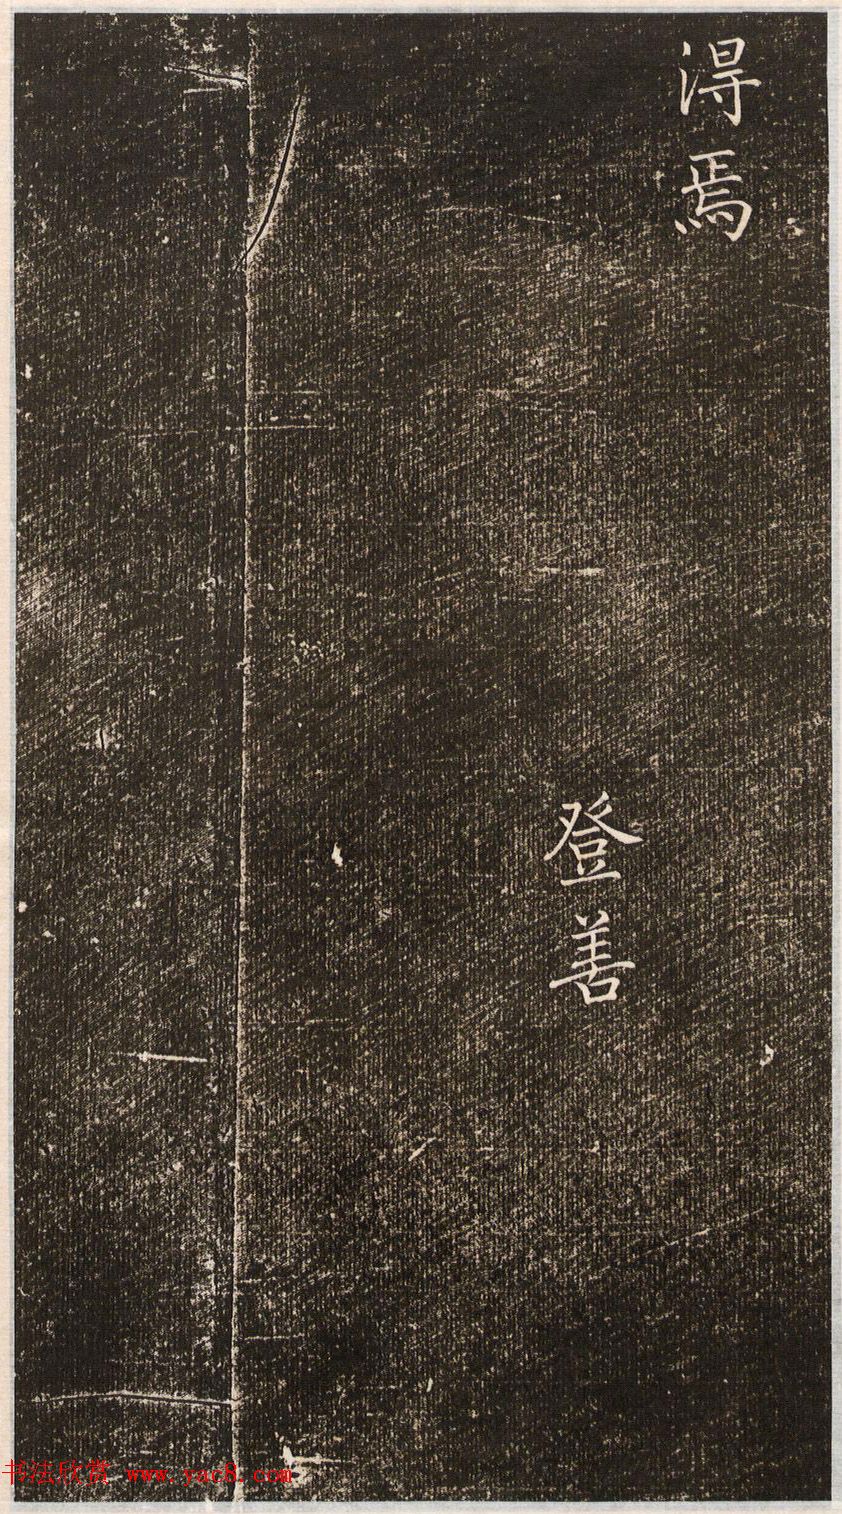 淂焉
登善
书法欣赏 www.yac8.com